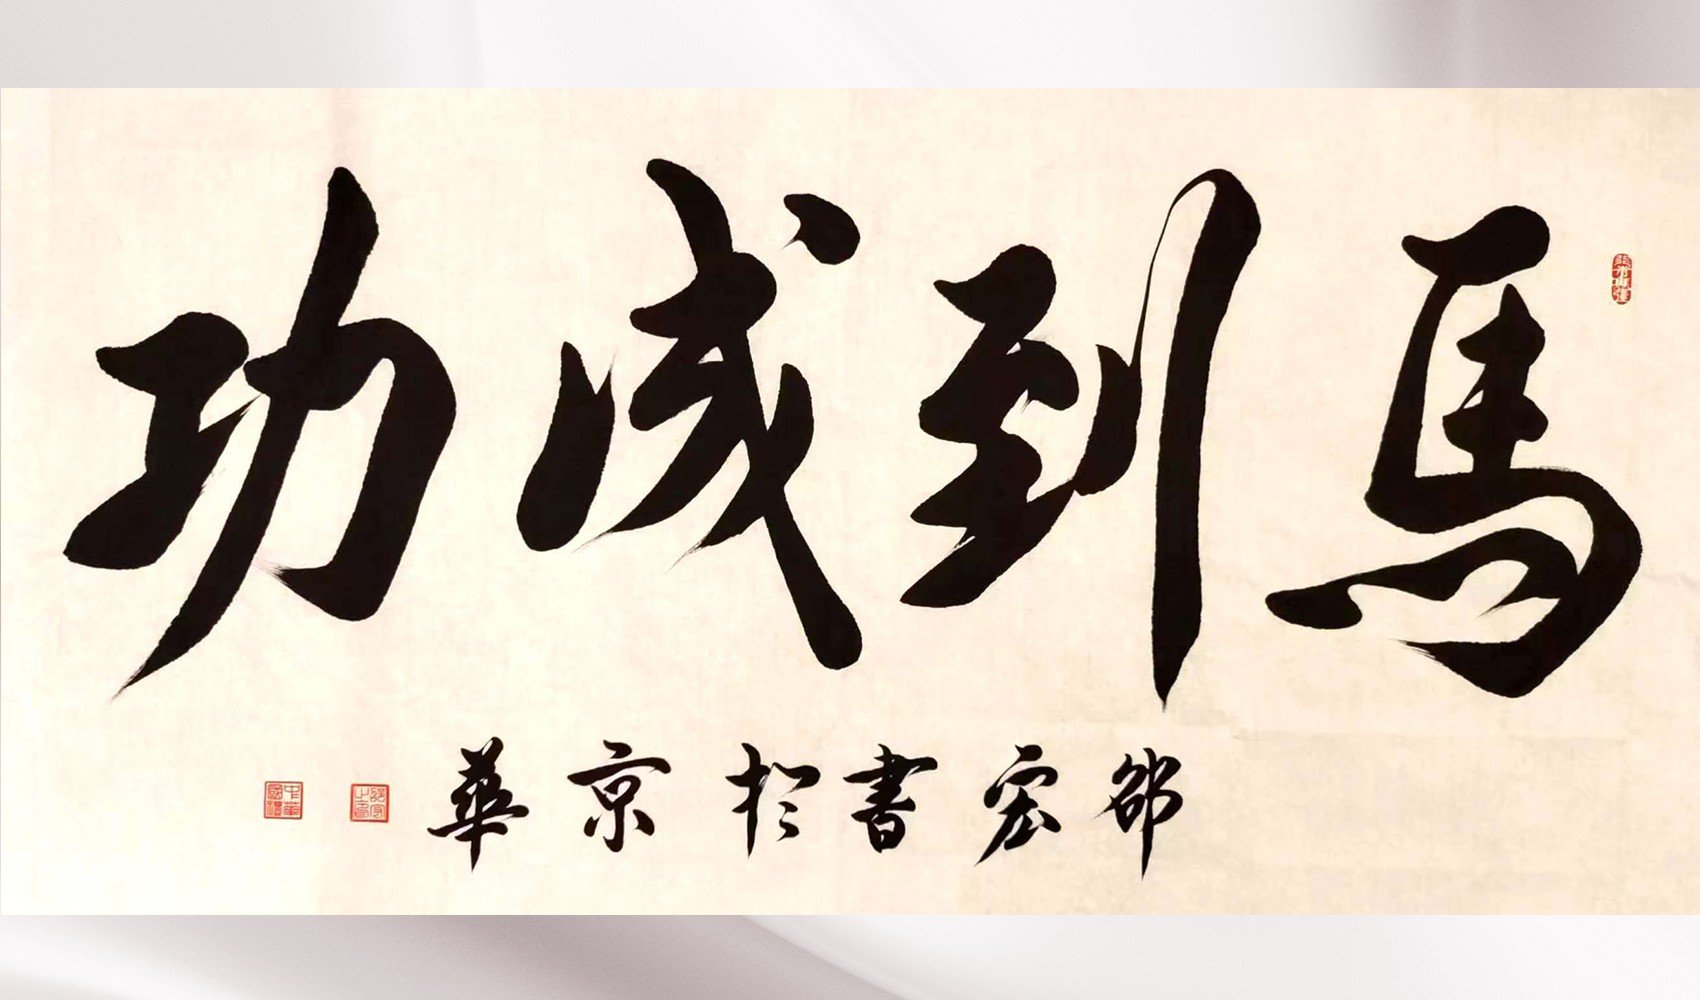 馬到成功
邵宏書於京華